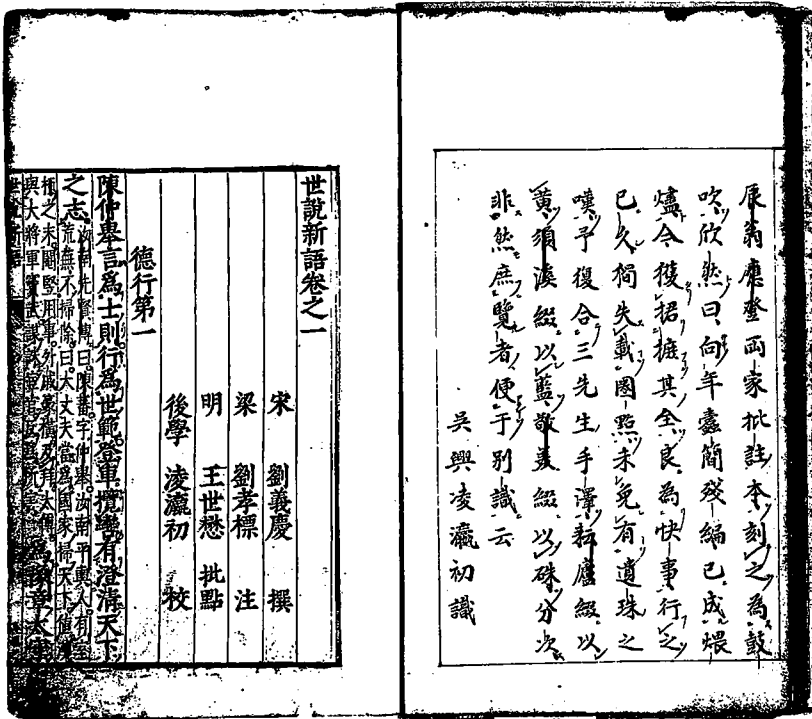 辰翁應登兩家批註本刻之為鼓
吹欣然曰向年蠹簡殘編已成煨
燼今獲捃摭其全良為快事行之
已久獨失載圈點未免有遺珠之
嘆予復合三先生手澤耘廬綴以
黃須溪綴以藍敬美綴以硃分次
非然庶覽者便于別識云
吳興凌瀛初識
世說新語卷之一
宋 劉義慶 撰
梁 劉孝標 注
明 王世懋 批點
後學 淩瀛初 校
德行第一
陳仲舉言爲士則行爲世範登車攬轡有澄清天下
之志
汝南先賢傳曰陳蕃字仲舉汝南平輿人有室
荒蕪不掃除曰大丈夫當爲國家掃天下值漢
桓之末閹豎用事外戚豪橫及拜太傅
與大將軍竇武謀誅宦官反爲所害
爲豫章太守
世說新語